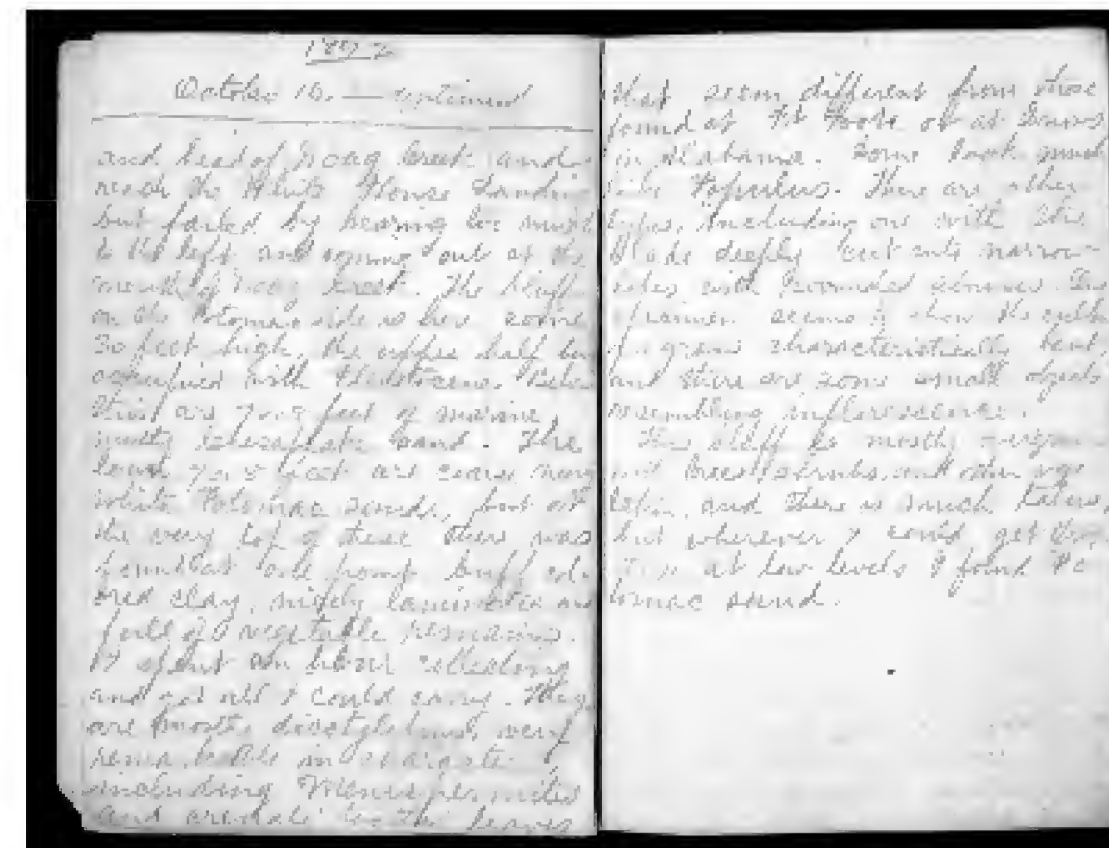 1892
October 10. — continued
and head of Hoag Creek and
reach the White House Landing
but failed by bearing too much
to the left and coming out at the
mouth of Hoag Creek. The bluff
on the Potomac side is here some
30 feet high, the upper half being
occupied with Pleistocene. Below
this are 7 or 8 feet of marine
sand. The
lower 7 or 8 feet are
white Potomac sands, but at
the very top of these there was
at one point buff col-
ored clay, nicely laminated and
full of vegetable remains.
I spent an hour collecting
and got all I could carry. They
are mostly dicotyledons, very
remarkable in character
including Menispermites
and leaves
that seem different from those
found at or at
in Alabama. Some look much
like Populus. There are other
types, including one with the
blade deeply cut into narrow
lobes with rounded sinuses. One
specimen seems to show the culm
of a grass characteristically bent,
and there are some small objects
resembling inflorescence.
This bluff is mostly overgrown
with trees, shrubs, and other vege-
tation, and there is much talus,
but wherever I could get
at low levels I found Po-
tomac sand.